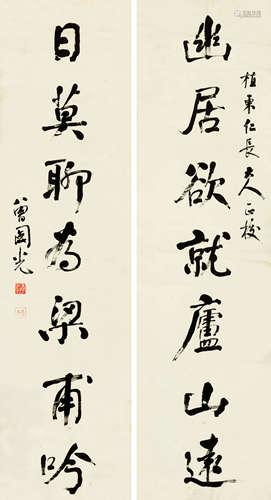 植東仁長大人正校
幽居欲就廬山遠
日莫聊為梁甫吟
曾國光